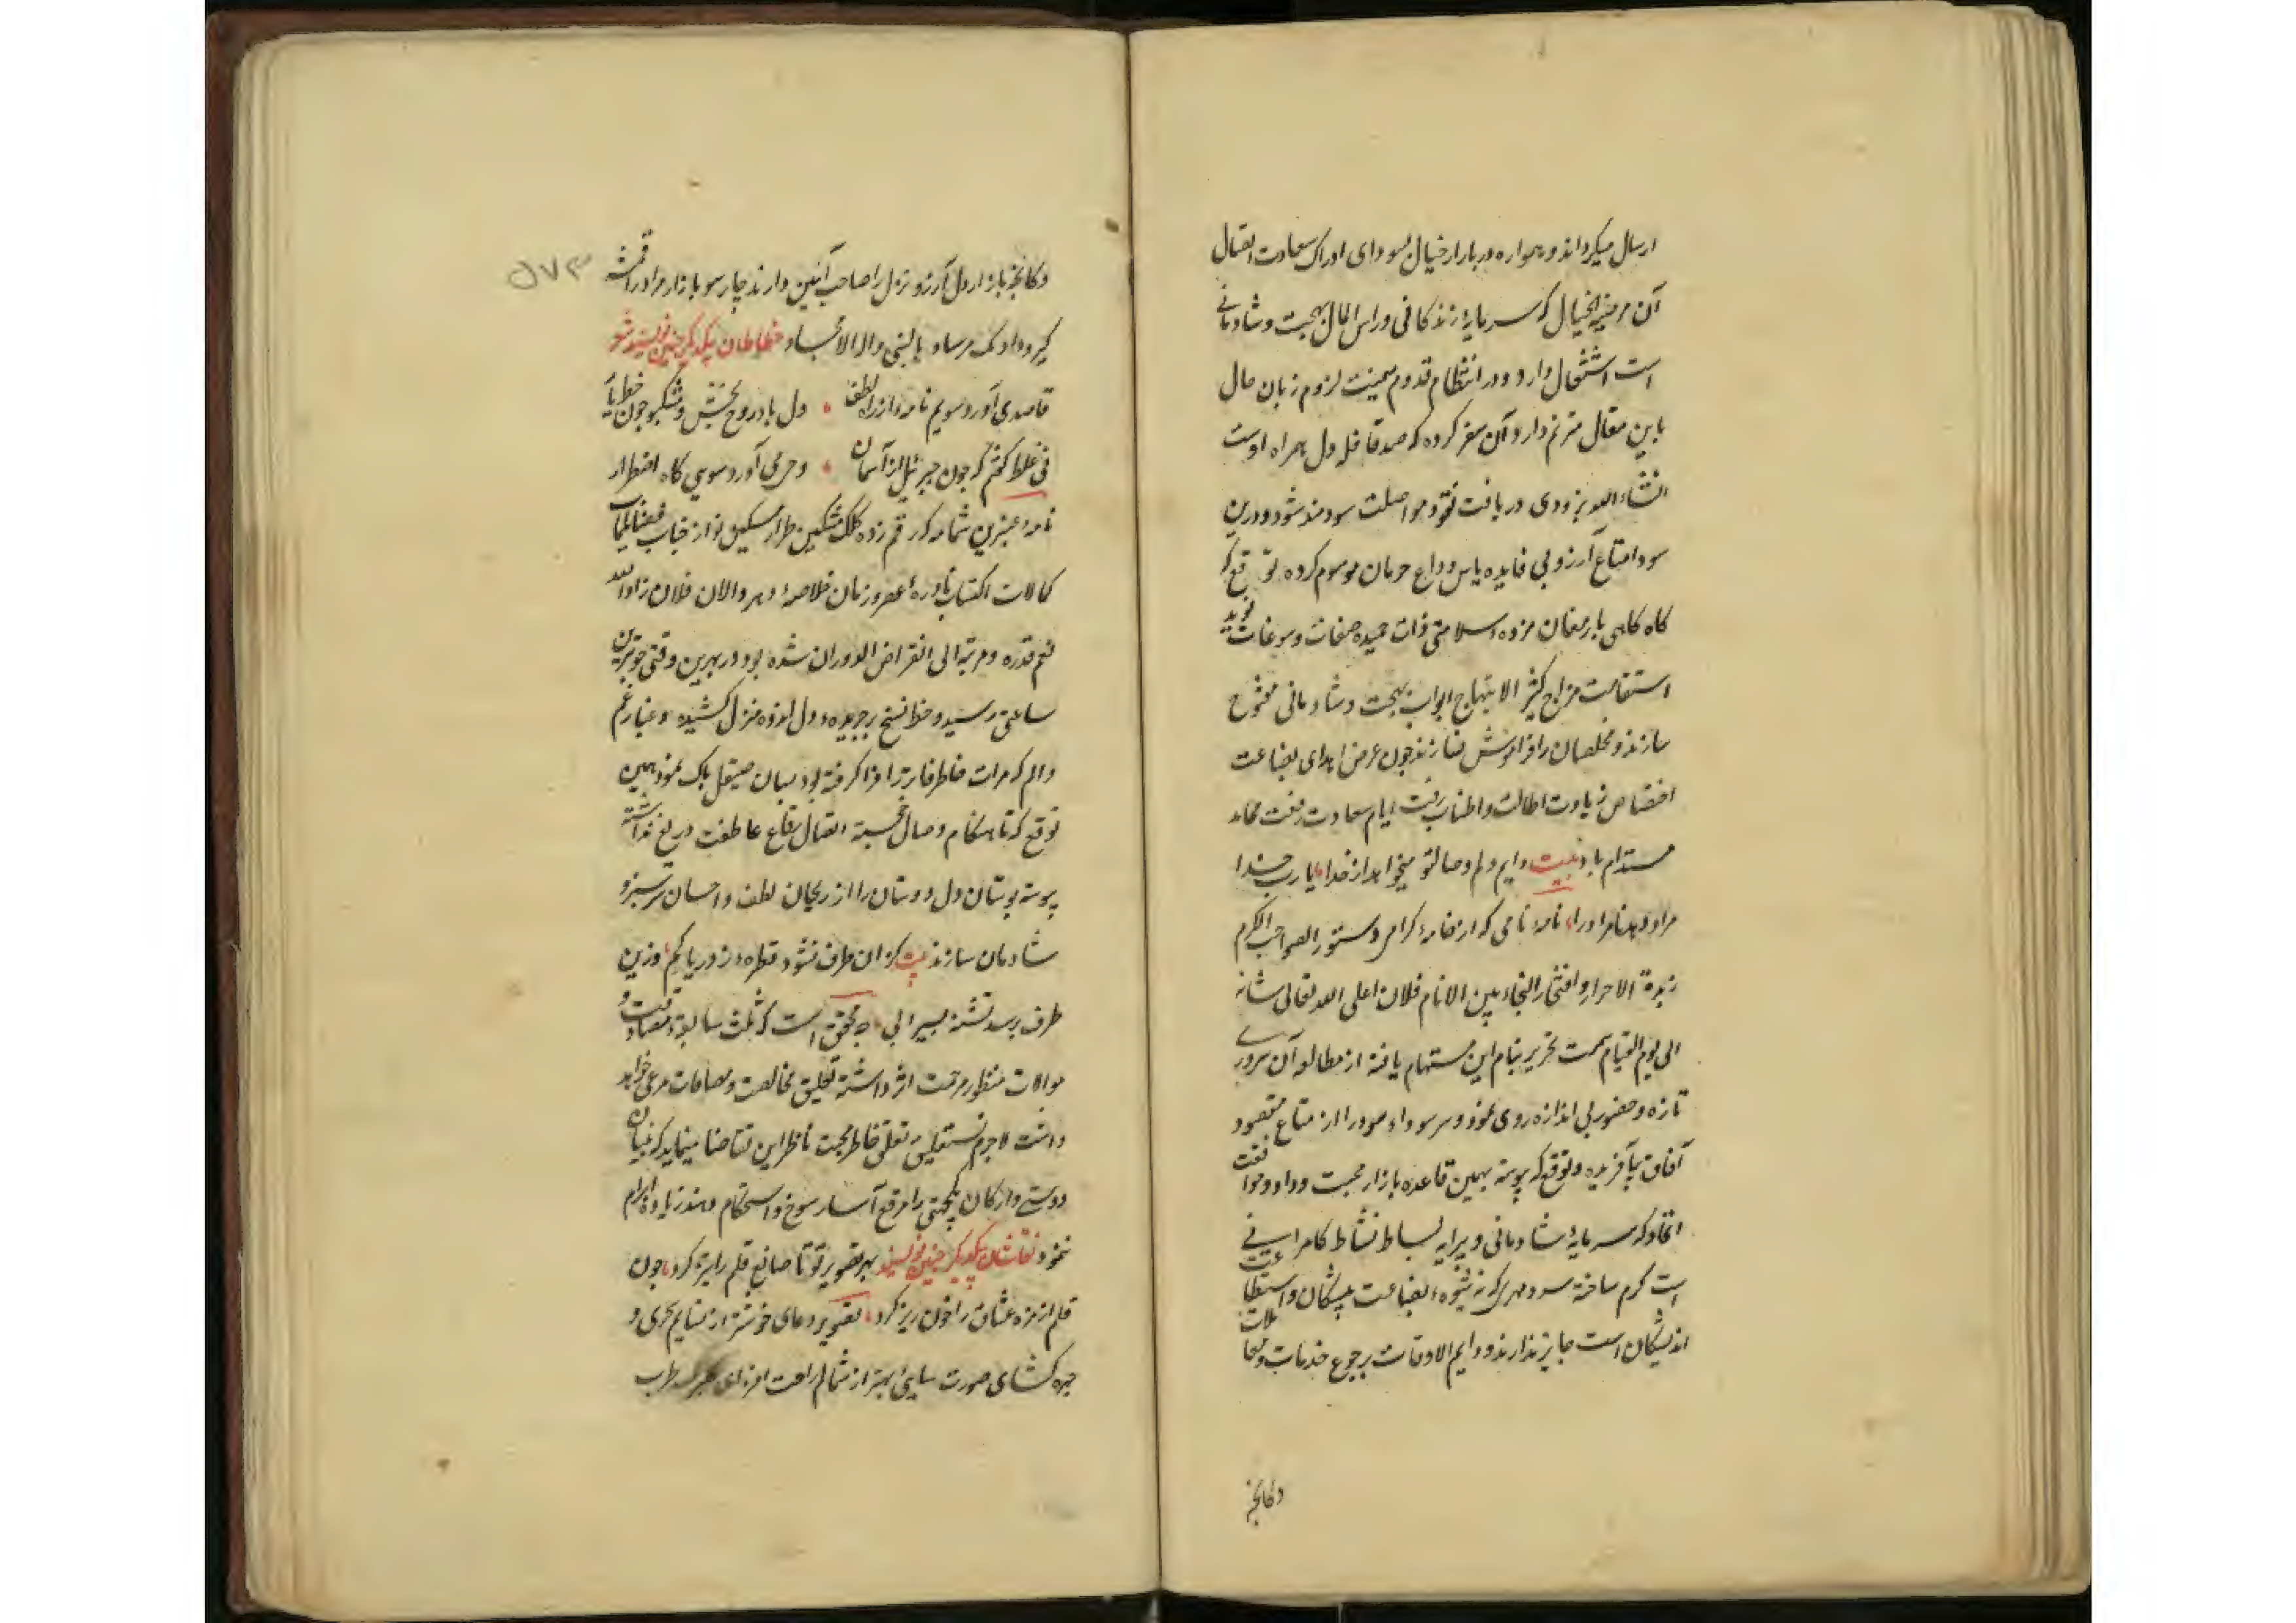 ارسال میکرداند و همواره در بازار خیال بسودای ادراک سعادت اتصال
آن مرضیة الخیال که سرمایهٔ زندکانی و راس المال بهجت و شادمانی
است اشتغال دارد و در انتظام قدوم میمنت لزوم زبان حال
باین مقال مترنم دارد آن سفر کرده که صد قافله دل همراه اوست
انشاء الله بزودی دریافت نقود مواصلت سودمند شود و درین
سودا متاع آرزو بی فایده یاس و داع حرمان موسوم کرده توقع که
کاه کاهی بارمغان مژدهٔ سلامتی ذات حمیده صفات و سوغات نوید
استقامت مزاج کثیر الابتهاج ابواب بهجت و شادمانی مفتوح
سازند و مخلصان را فراموش نسازند چون عرض اهدای بضاعت
اختصاص زیادت اطالت و اطناب رفت ایام سعادت رفعت مخلد
مستدام باد بیت دایم دلم وصال تو میخواهد از خدا یا رب خدا
مراد دهد نامراد را نامهٔ نامی که از خامهٔ کرامی دستور الصواحب الکرم
زبدة الاحرار و افتخار التجار بین الانام فلان اعلی الله تعالی شانه
الی یوم القیام سمت تحریر بنام این مستهام یافته از مطالعه آن سروری
تازه و حضور بی اندازه روی نمود و سر سوداء سود را از متاع مقصود
آفاق بیآفریده و توقع که پیوسته بهمین قاعده بازار محبت و وداد و موافقت
اتحاد که سرمایهٔ شادمانی و پیرایه بساط نشاط کامرانی
است کرم ساخته سردمهری که نه شیوهٔ بضاعت پیشکان و استطاعت
اندیشکان است جایز ندارند و دایم الاوقات برجوع خدمات و معاملات
دکانچه
دکانچه بازار دل آرزو نزل را صاحب آئین دارند چارسو بازار مراد را قمشه
کیر و داد مرساد بالنبی و اله الامجاد خطاطان بیکدیکر چنین نویسند شعر
قاصدی آورد سویم نامهٔ از راه لطف دل بادر روح بخش و مشکبو چون خط یار
نی غلط کفتم که چون جبرئیل از آسمان وحیی آورد سوی کاه اضطرار
نامهٔ عنبرین شمامه که رقم زده کلک مشکین طراز مسکین نواز جناب فضایلمآب
کمالات اکتساب نادرهٔ عصر و زمان خلاصهٔ دهر والاان فلان زاد الله
قدره و مرتبه الی انقراض الدوران شده بود در بهترین وقتی و خوبترین
ساعتی رسید و خط نسخ بر جریدهٔ دل اندوه منزل کشیده و غبار غم
و الم که مرات خاطر فاتر را فرا کرفته بود بسان صیقل پاک نمود همین
توقع که تا هنکام وصال خجسته اتصال رقاع عاطفت دریغ نداشته
پیوسته بوستان دل دوستان را از ریحان لطف و احسان سرسبز و
شادمان سازند بیت کز آن طرف نشود قطرهٔ ز دریا کم وزین
طرف برسد تشنهٔ بسیرابی چه محقق است که ثلث سابقهٔ مصادقت و
موالات منظور مرحمت اثر داشته تعلیق مخالصت و مصافات مرعی خواهد
داشت لاجرم نستعلیق تعلق خاطر محبت ناظر این تقاضا مینماید که بنیان
دوستی و ارکان یکجهتی را مرقع آسا رسوخ و استحکام دهند زیاده ابرام
ننمود نقاشان بیکدیکر چنین نویسند بهر تصویر تو تا صانع قلم را تیز کرد چون
قلم از مژه عشاق را خون ریز کرد تصویر دعای خوشتر از نسایم سحری و
چهره کشای صورت سلامی بهتر از شمال راحت افزای طرب